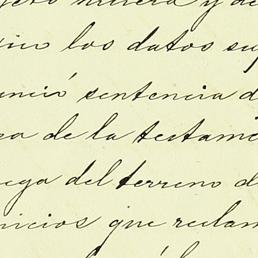 y de
los datos su
unció sentencia d
de la testame
ega del terreno d
nicios que reclam